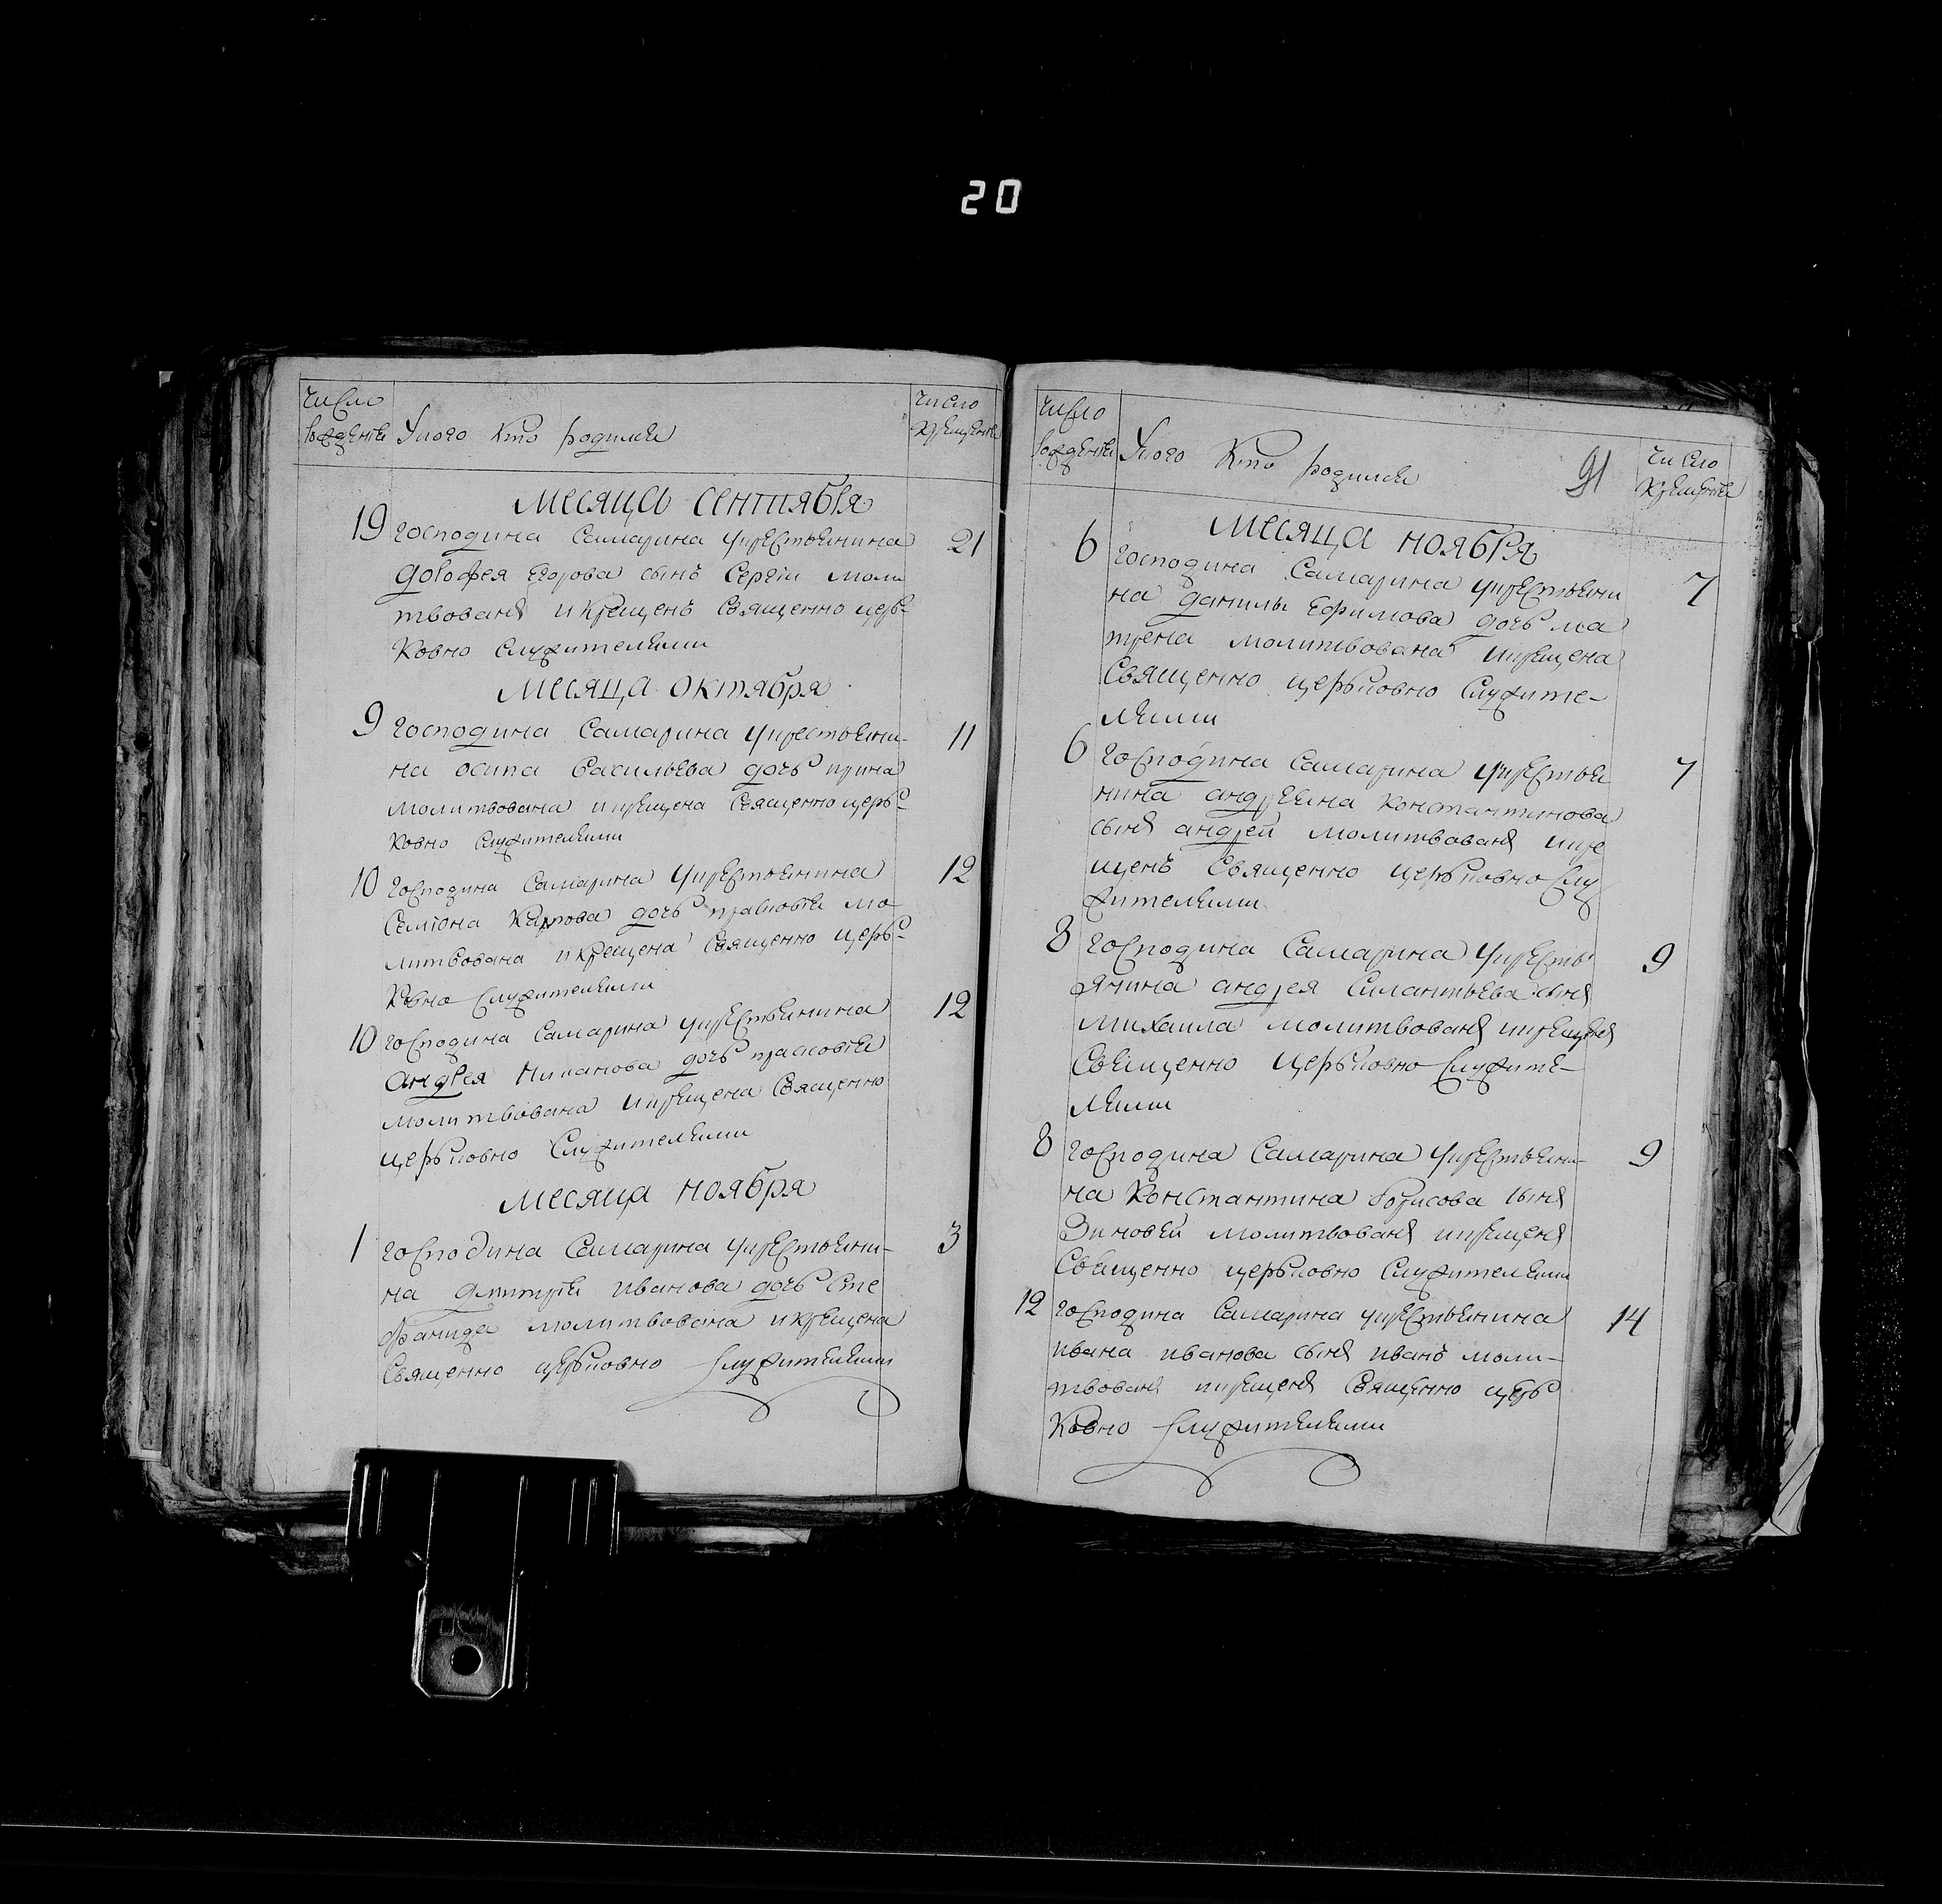 20
Число рождения
У кого кто родился
Число крещения
Месяца сентября
19 господина Самарина укрестьянина 21
дорофея Егорова сынъ Сергiи моли
твованъ и крещенъ Священно церь-
ковно служителями
Месяца октября
9 господина Самарина укрестьяни- 11
на осипа васильева дочь ирина
молитвована икрещена Священно церь-
ковно служителями
10 господина Самарина укрестьянина 12
Семiона Карпова дочь прасковiя мо
литвована икрещена Священно церь-
ковно служителями
10 господина Самарина укрестьянина 12
андрея дочь прасковiя
молитвована икрещена Священно
церьковно Служителями
Месяца ноября
1 господина Самарина укрестьяни- 3
на дмитрiя иванова дочь Сте
фанида молитвована икрещена
Священно церьковно служителями
Число рождения
У кого кто родился
91
Число крещения
Месяца ноября
6 господина Самарина укрестьяни 7
на данилы Ефимова дочь ма
трена молитвована икрещена
Священно церьковно служите-
лями
6 господина Самарина укрестья 7
нина андреяна константинова
сынъ андрей молитвованъ икре
щенъ Священно церьковно слу
жителями
8 господина Самарина укресть 9
янина андрея Силантьева сынъ
михаила молитвованъ икрещенъ
Священно церьковно служите-
лями
8 господина Самарина укрестьяни- 9
на константина борисова сынъ
Зиновей молитвованъ икрещенъ
Священно церьковно служителями
12 господина Самарина укрестьянина 14
ивана иванова сынъ иванъ моли-
твованъ икрещенъ Священно церь
ковно служителями